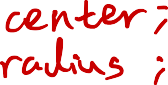 center;
radius ;